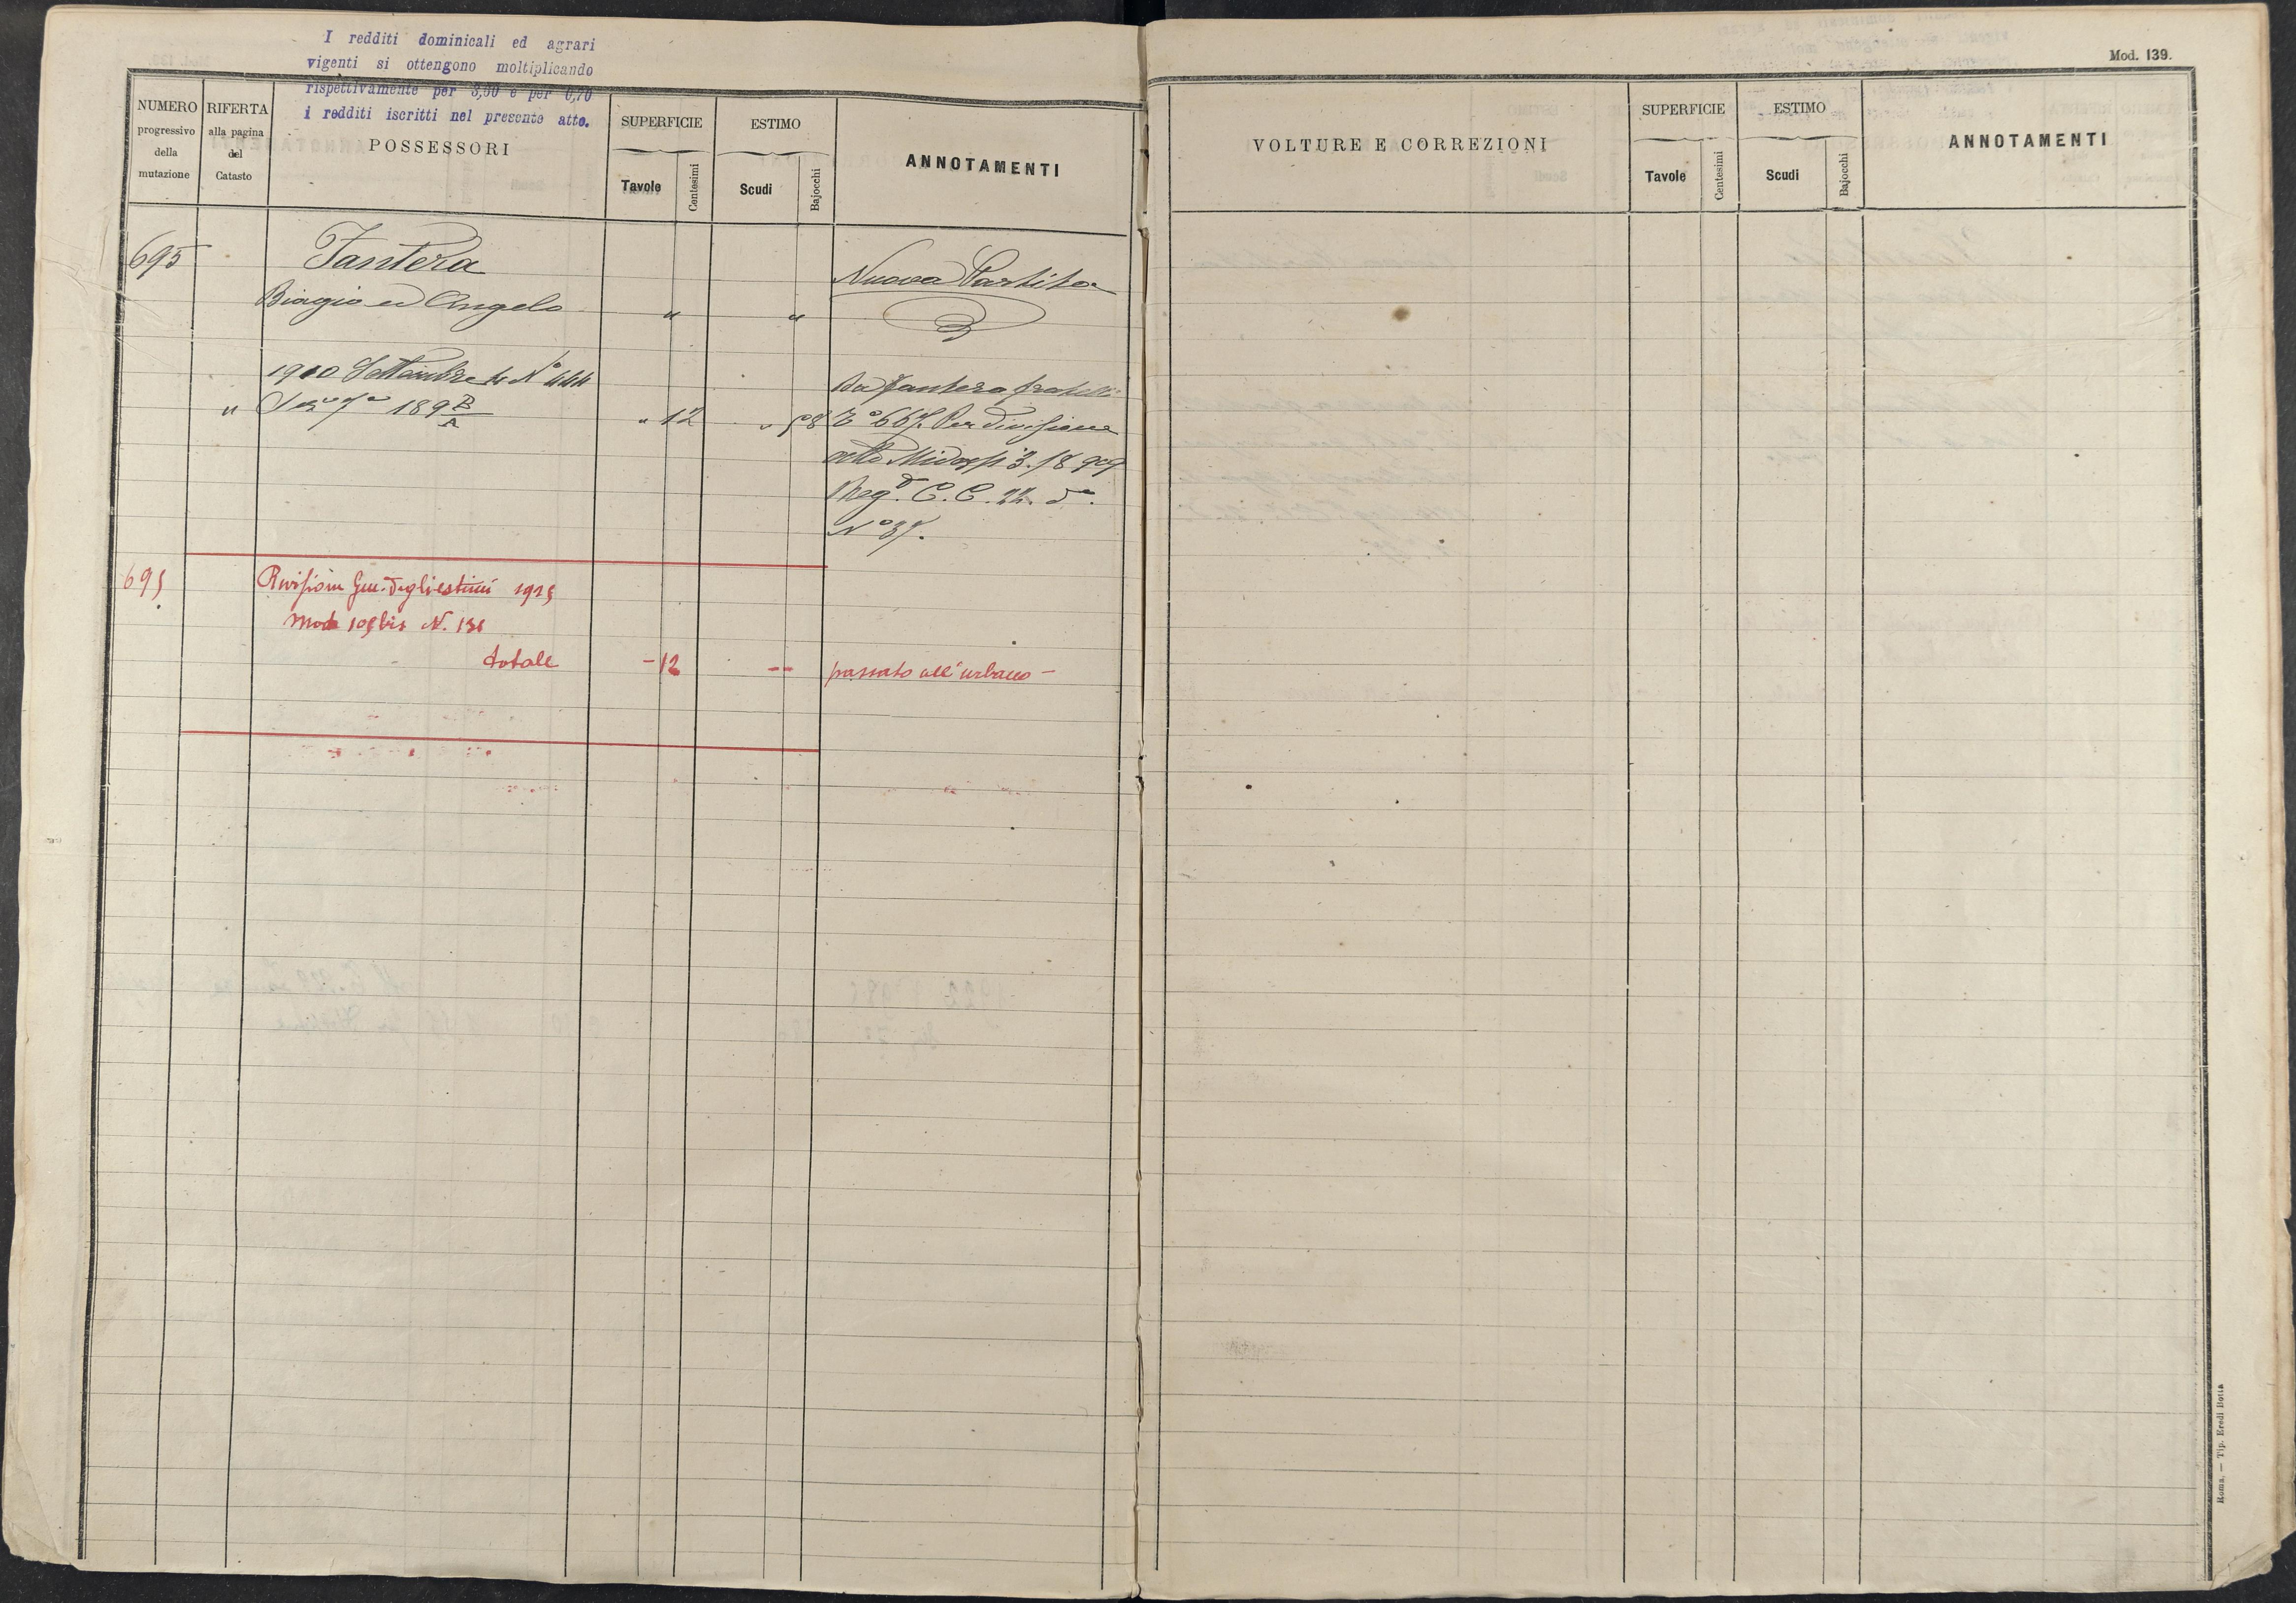 I redditi dominicali ed agrari
vigenti si ottengono moltiplicando
rispettivamente per 3,00 e per 6,70
i redditi iscritti nel presente atto.
NUMERO
progressivo
della
mutazione
RIFERTA
alla pagina
del
Catasto
POSSESSORI
SUPERFICIE
Tavole
Centesimi
ESTIMO
Scudi
Bajocchi
ANNOTAMENTI
695
Fantera
Biagio ed Angelo
" "
Nuova Partita
1910 Settembre N° 444
" 189 B/A
" 12 " 58
Da Fantera fratelli
Per divisione
atto
Reg° C. C.
N° 37.
695
Revisione Gen. degli estimi 1915
Mod 109 bis N. 136
totale
-12
--
passato all'urbano -
Mod. 139.
VOLTURE E CORREZIONI
SUPERFICIE
Tavole
Centesimi
ESTIMO
Scudi
Bajocchi
ANNOTAMENTI
Roma. — Tip. Eredi Botta